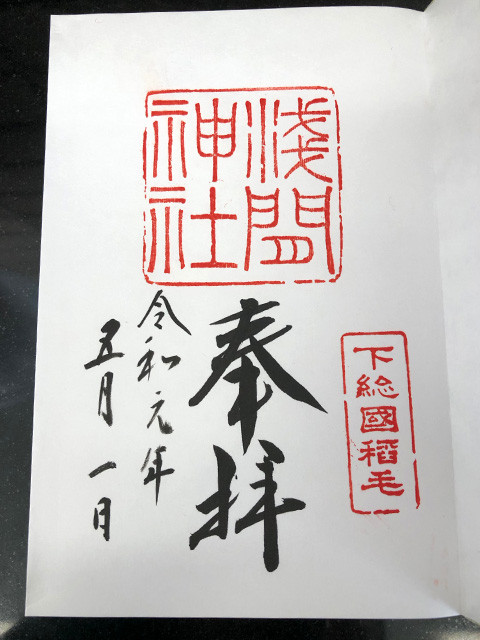 下総國稻毛
淺間
神社
奉拝
令和元年
五月一日